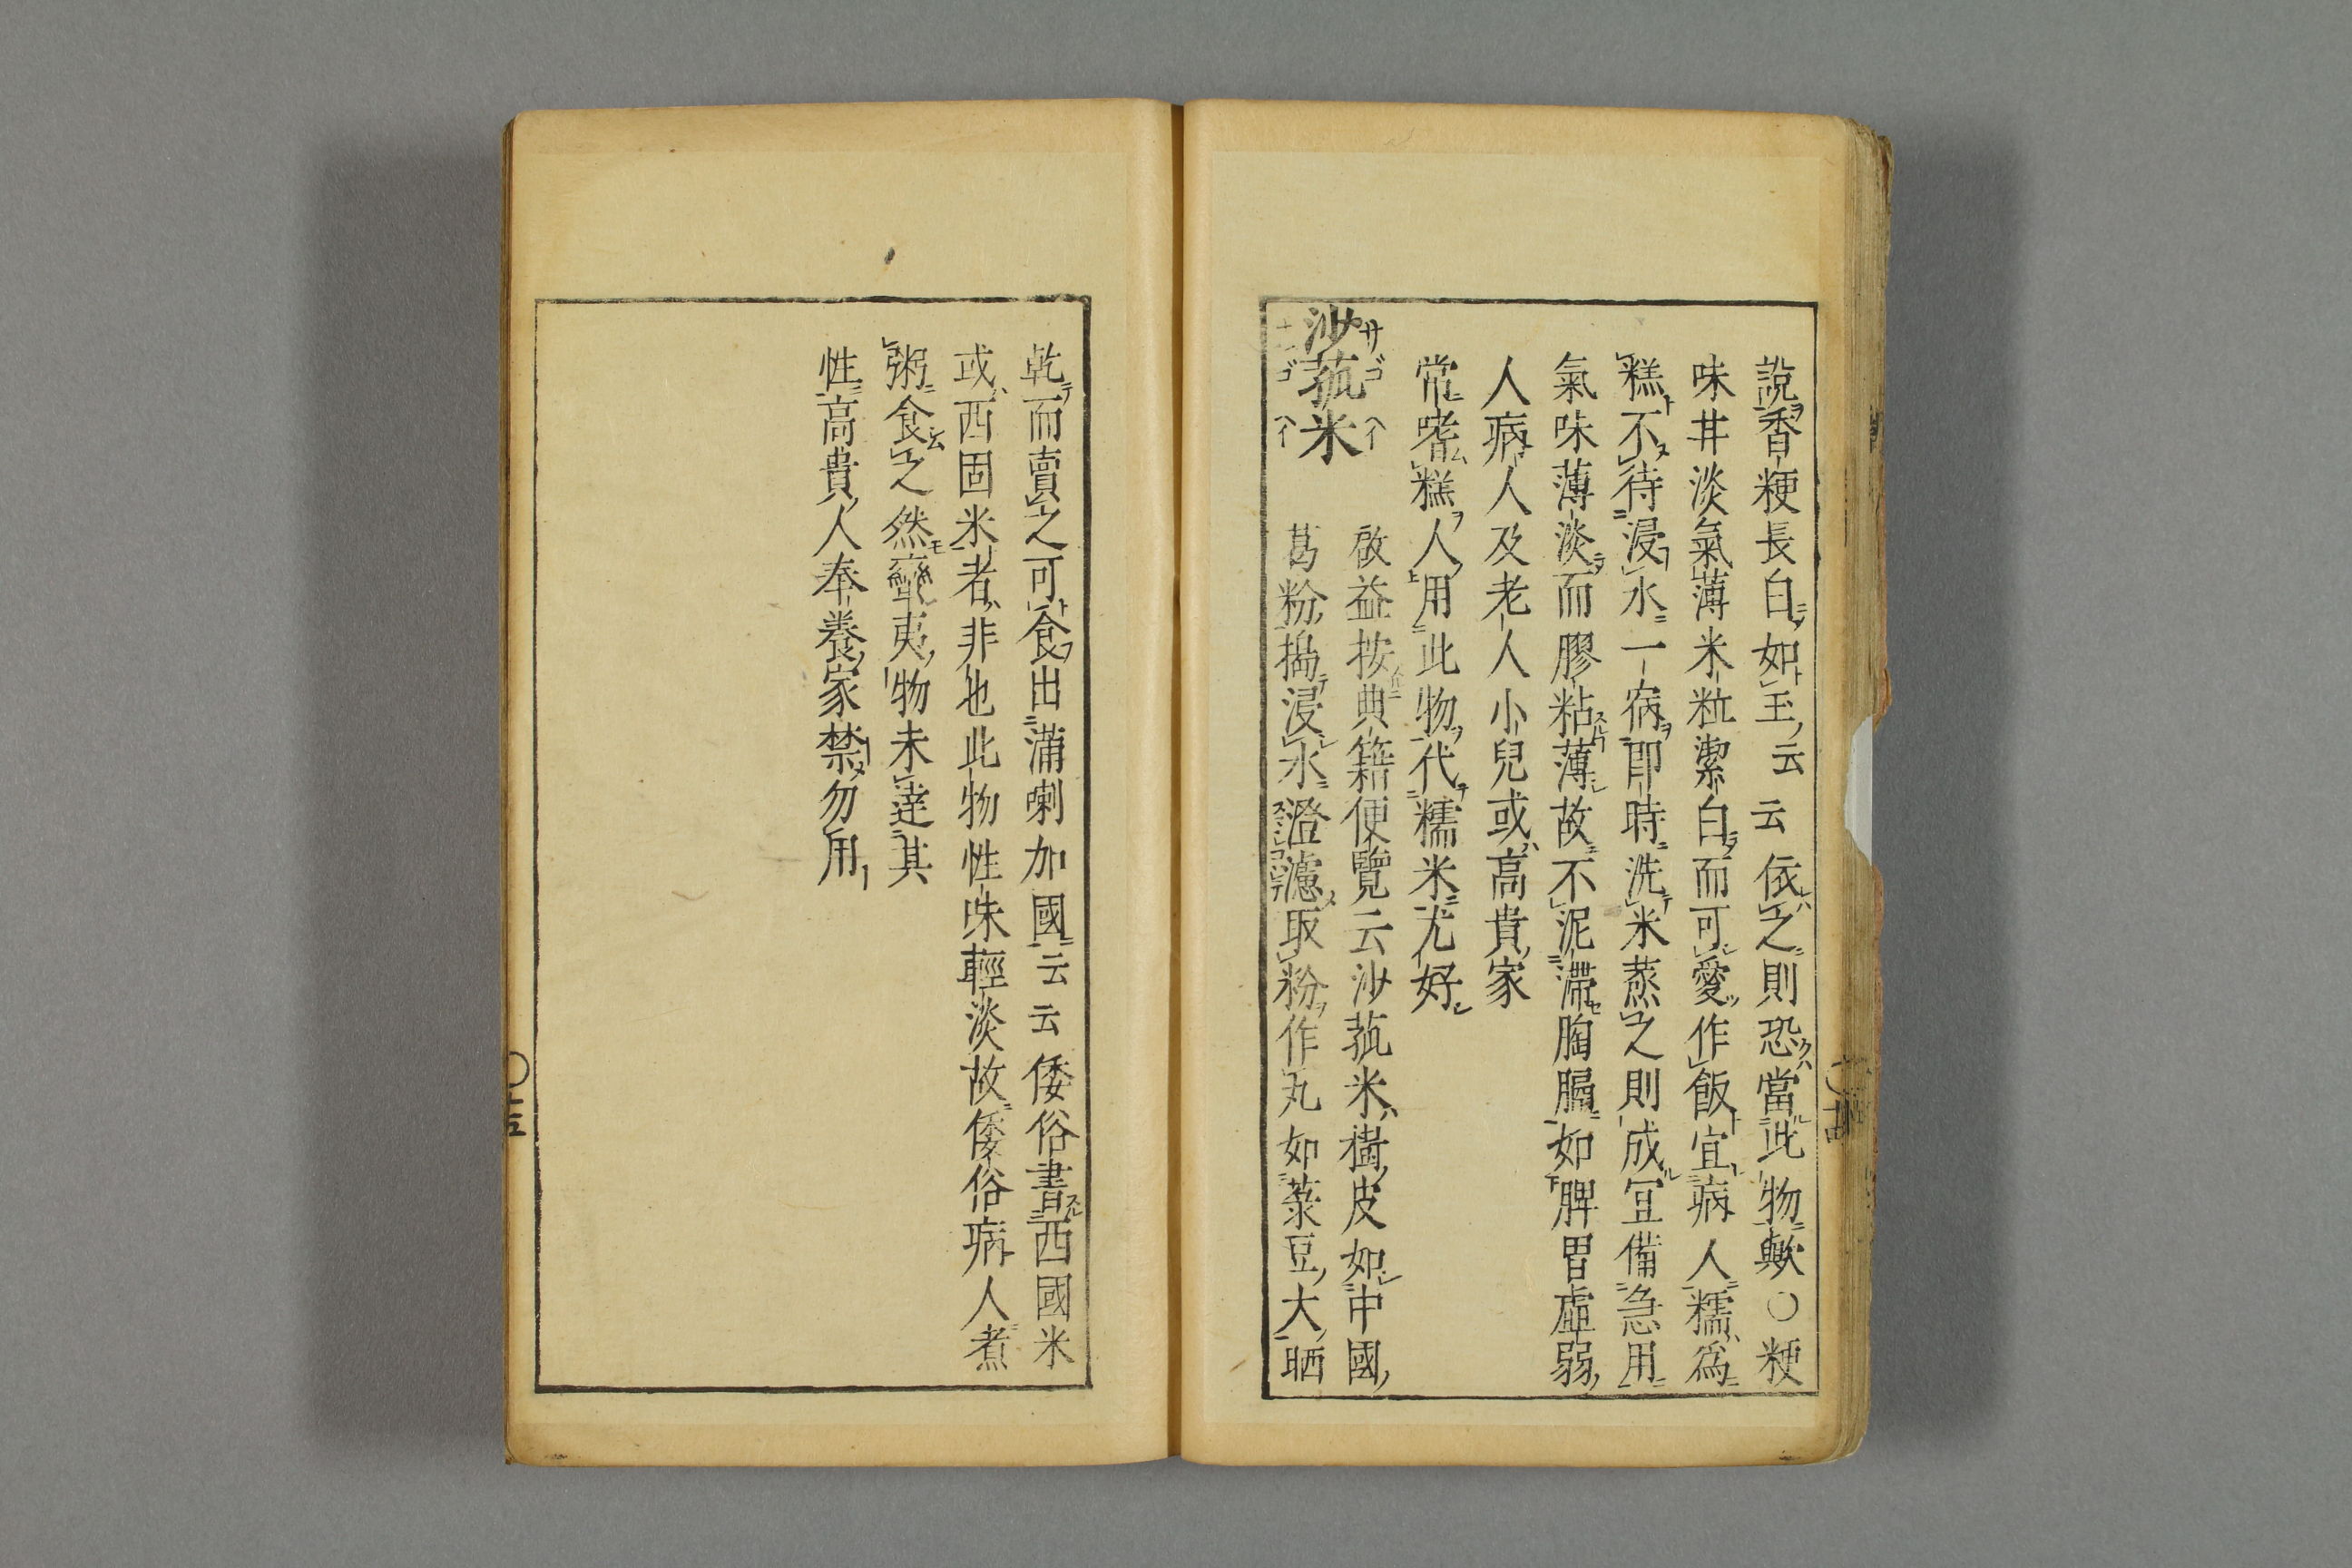 說香粳長白如玉云云依之則恐當此物歟○粳
味甘淡氣薄米粒潔白而可愛作飯宜病人糯為
糕不待浸水一宿即時洗米蒸之則成宜備急用
氣味薄淡而膠粘薄故不泥滯胸膈如脾胃虛弱
人病人及老人小兒或高貴家
常嗜糕人用此物代糯米尤好
沙菰米
啟益按典籍便覽云沙菰米樹皮如中國
葛粉搗浸水澄濾取粉作丸如菉豆大晒
乾而賣之可食出滿喇加國云云倭俗書西國米
或西固米者非也此物性味輕淡故倭俗病人煮
粥食之然蠻夷物未達其
性高貴人奉養家禁勿用